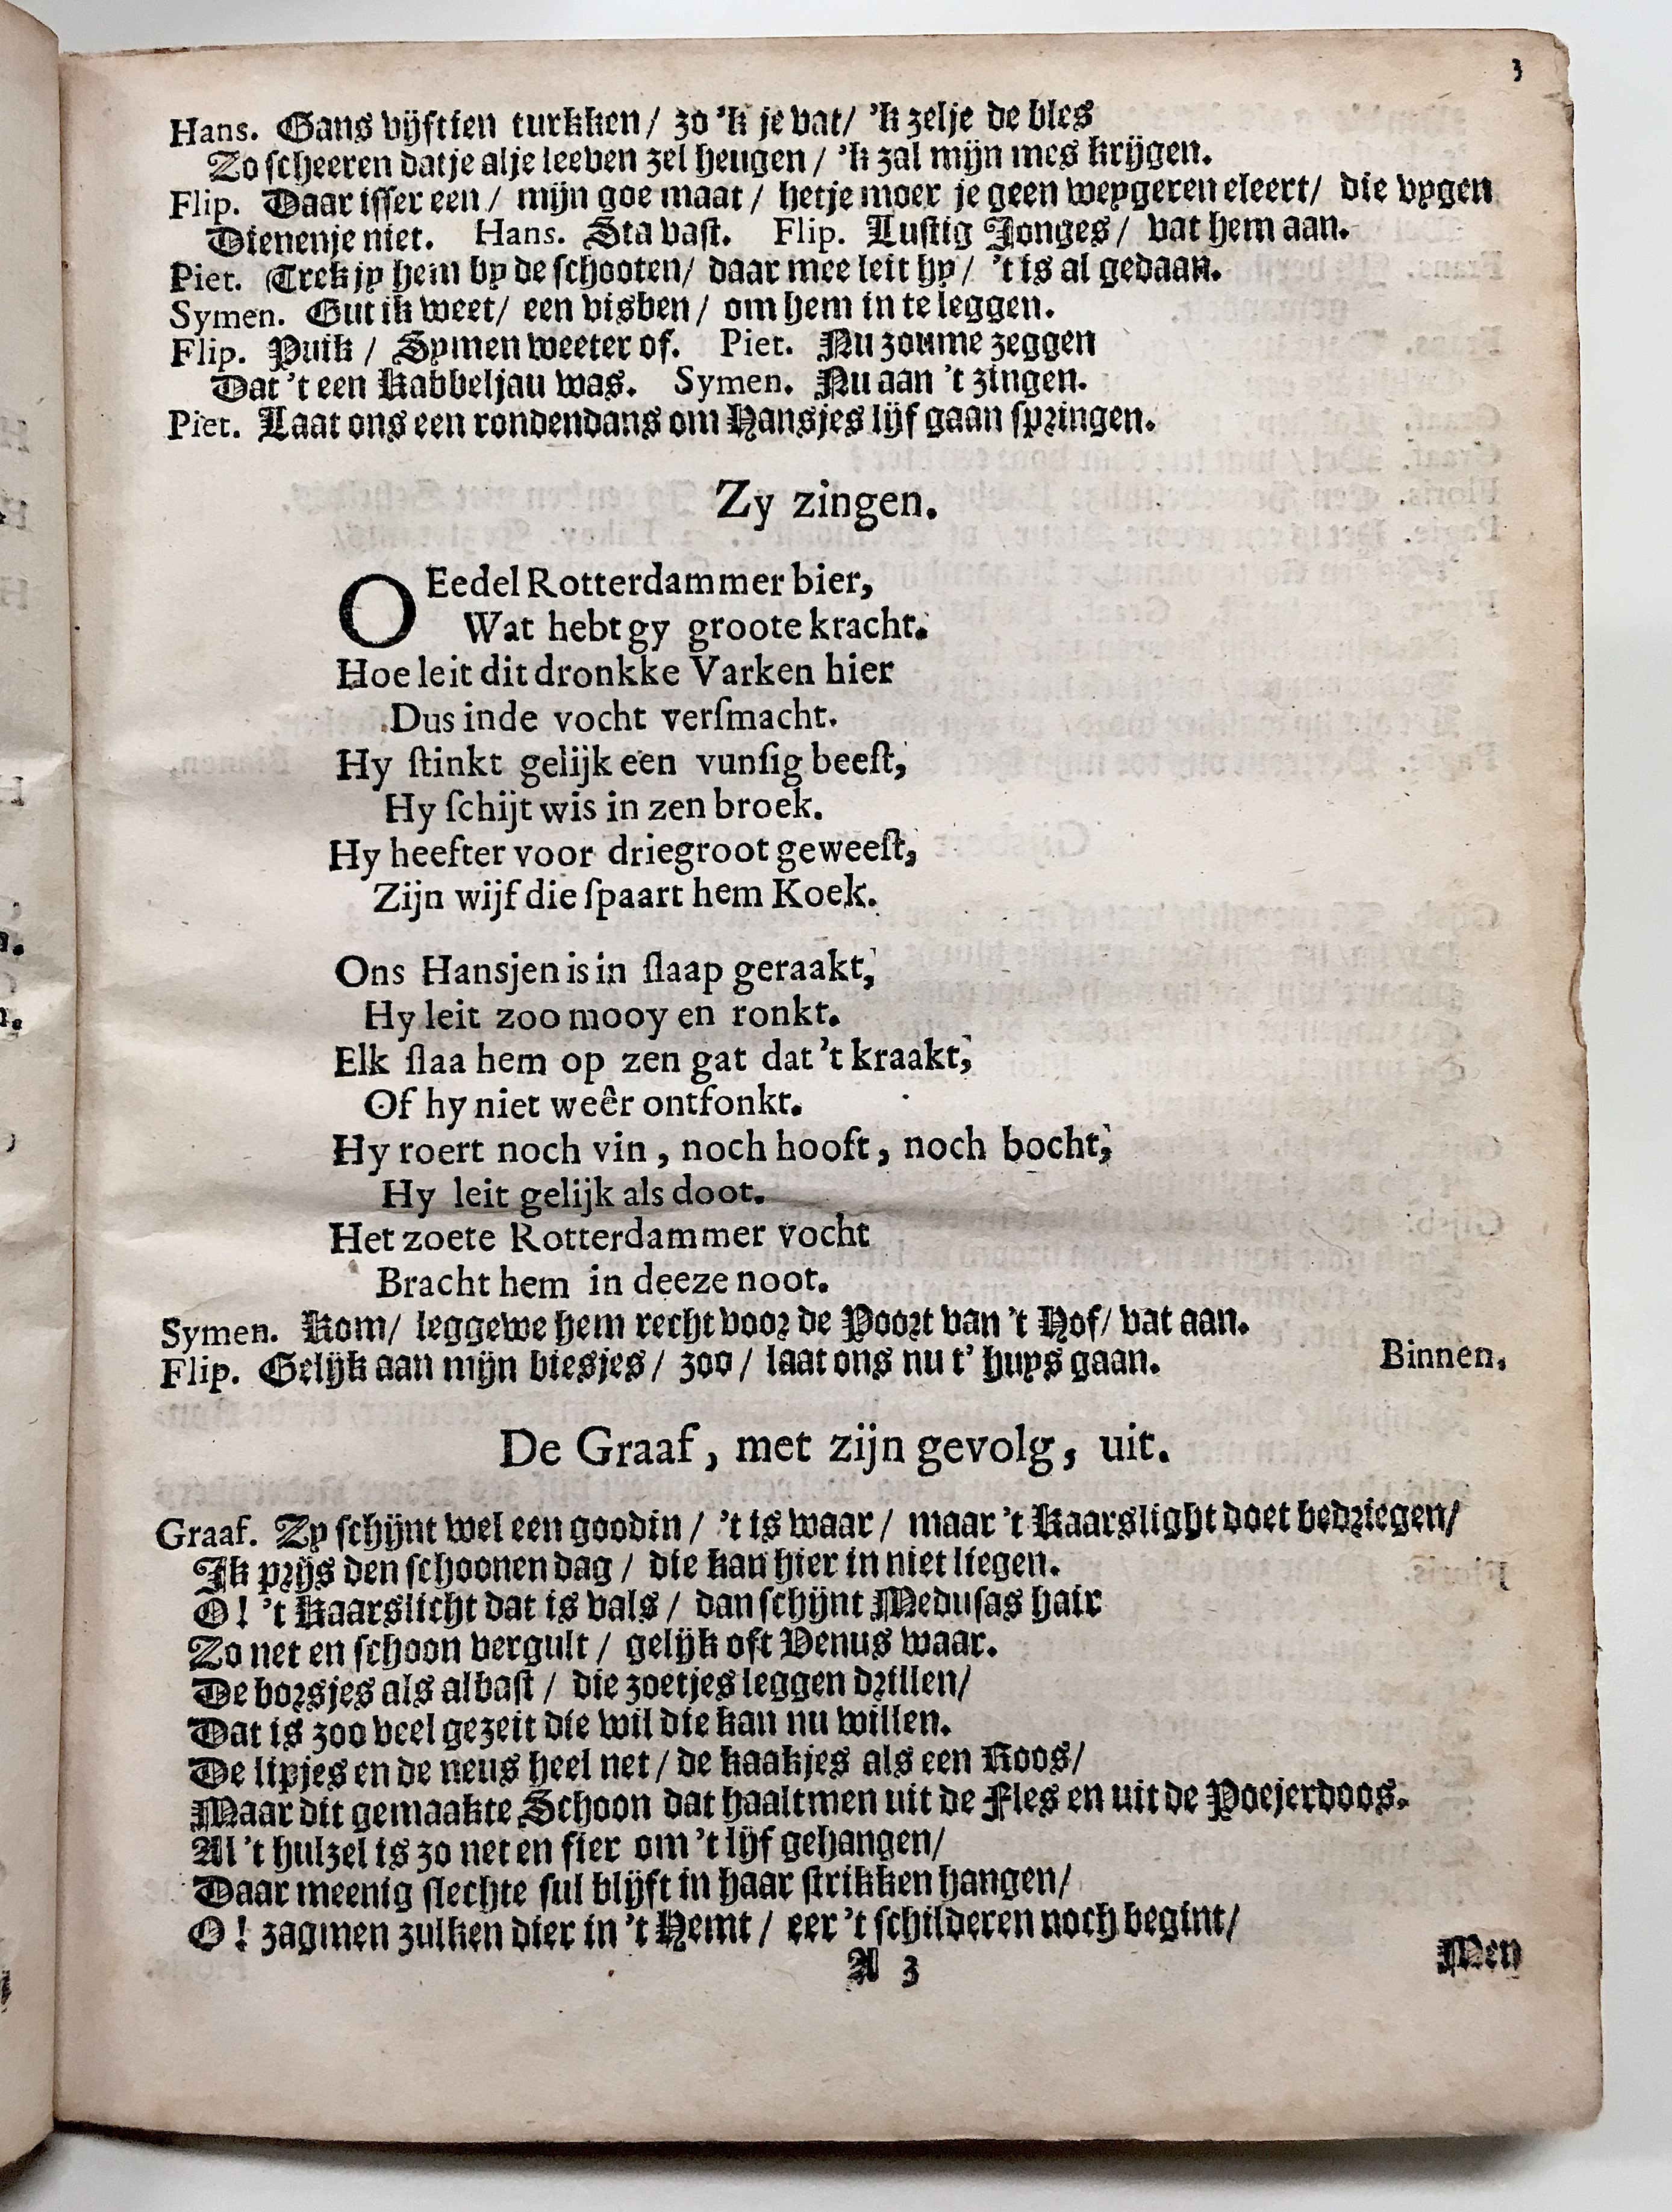 3
Hans. Gans vijftien turkken / zo 'k je vat / 'k zelje de bles
Zo scheeren datje alje leeven zel heugen / 'k zal mijn mes krijgen.
Flip. Daar isser een / mijn goe maat / hetje moer je geen weygeren eleert / die vygen
Dienenje niet. Hans. Sta vast. Flip. Lustig Jonges / vat hem aan.
Piet. Trek jy hem by de schooten / daar mee leit hy / 't is al gedaan.
Symen. Gut ik weet / een visben / om hem in te leggen.
Flip. Puik / Symen weeter of. Piet. Nu zoume zeggen
Dat 't een Kabbeljau was. Symen. Nu aan 't zingen.
Piet. Laat ons een rondendans om Hansjes lijf gaan springen.
Zy zingen.
O Eedel Rotterdammer bier,
Wat hebt gy groote kracht.
Hoe leit dit dronkke Varken hier
Dus inde vocht verſmacht.
Hy ſtinkt gelijk een vunſig beeſt,
Hy ſchijt wis in zen broek.
Hy heefter voor driegroot geweeſt,
Zijn wijf die ſpaart hem Koek.
Ons Hansjen is in ſlaap geraakt,
Hy leit zoo mooy en ronkt.
Elk ſlaa hem op zen gat dat 't kraakt,
Of hy niet weêr ontfonkt.
Hy roert noch vin, noch hooft, noch bocht,
Hy leit gelijk als doot.
Het zoete Rotterdammer vocht
Bracht hem in deeze noot.
Symen. Kom / leggewe hem recht voor de Poort van 't Hof / vat aan.
Flip. Gelijk aan mijn biesjes / zoo / laat ons nu t' huys gaan. Binnen.
De Graaf, met zijn gevolg, uit.
Graaf. Zy schijnt wel een goodin / 't is waar / maar 't Kaarslight doet bedriegen /
Ik prijs den schoonen dag / die kan hier in niet liegen.
O! 't Kaarslicht dat is vals / dan schijnt Medusas hair
Zo net en schoon vergult / gelijk oft Venus waar.
De borsjes als albast / die zoetjes leggen drillen /
Dat is zoo veel gezeit die wil die kan nu willen.
De lipjes en de neus heel net / de kaakjes als een Roos /
Maar dit gemaakte Schoon dat haaltmen uit de Fles en uit de Poejerdoos.
Al 't hulzel is zo net en fier om 't lijf gehangen /
Daar meenig slechte sul blijft in haar strikken hangen /
O! zagmen zulken dier in 't Hemt / eer 't schilderen noch begint /
A 3 Men